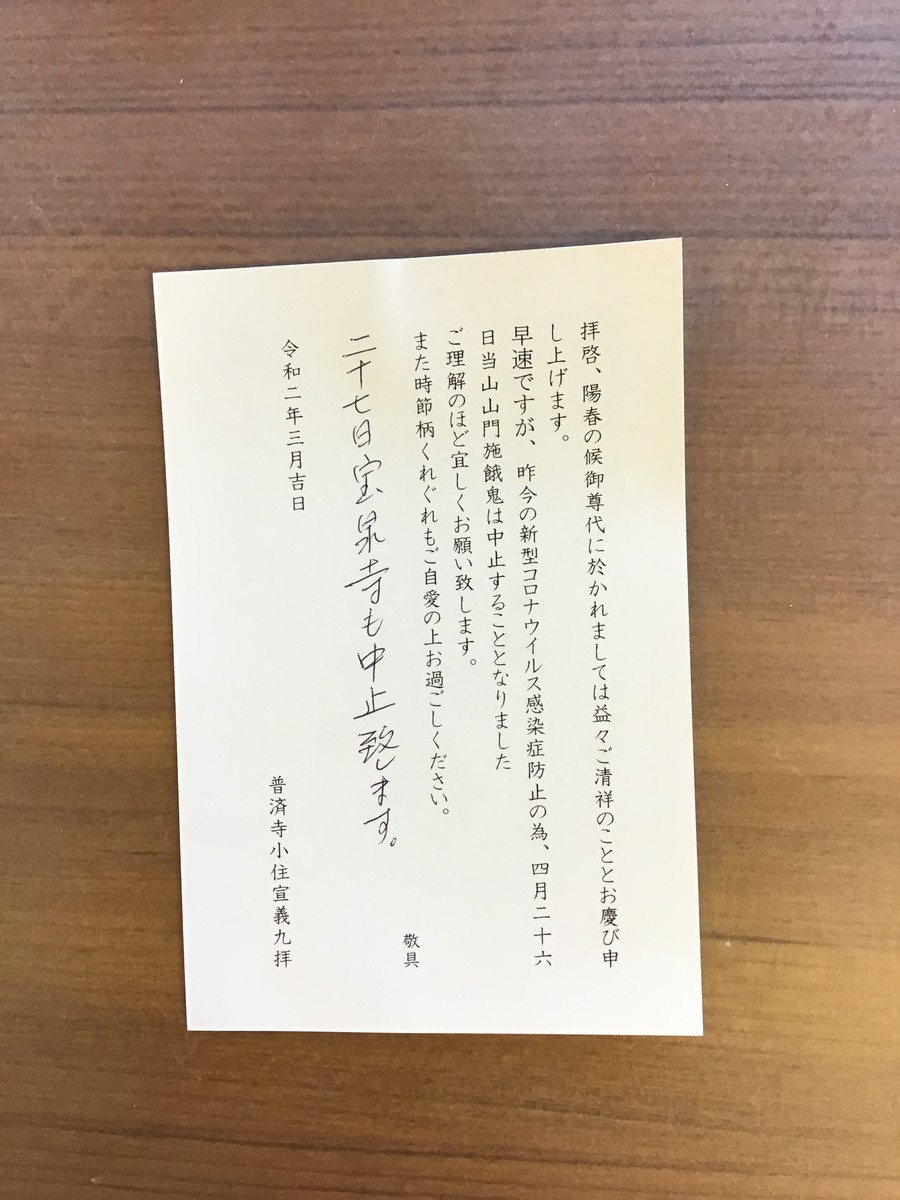 拝啓、陽春の候御尊代に於かれましては益々ご清祥のこととお慶び申
し上げます。
早速ですが、昨今の新型コロナウイルス感染症防止の為、四月二十六
日当山山門施餓鬼は中止することとなりました
ご理解のほど宜しくお願い致します。
また時節柄くれぐれもご自愛の上お過ごしください。
敬具
二十七日宝泉寺も中止致します。
令和二年三月吉日
普済寺小住宣義九拝